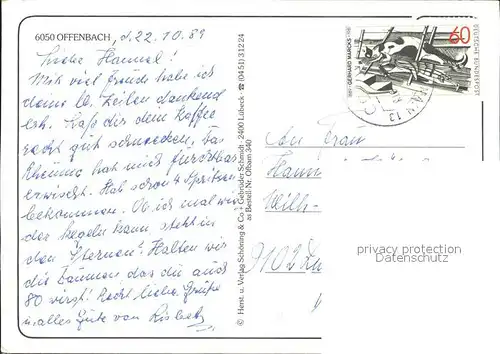 6050 OFFENBACH, d. 22.10.89
Liebe Hannel!
Mit viel Freude habe ich
deine lb. Zeilen dankend
erh. Laß dir dem Kaffee
recht gut schmecken. Das
Rheuma hat mich furchtbar
erwischt. Hab schon 4 Spritzen
bekommen. Ob ich mal wie
der kegeln kann steht in
den Sternen! Halten wir
die Daumen das du auch
80 wirst! Recht liebe Grüße
u. alles Gute von
© Horst. u. Verlag Schöning & Co + Gebrüder Schmidt · 2400 Lübeck · ☎ (04 51) 3 12 24
Bestell Nr. Ofbam 540
1889-GERHARD MARCKS-1981
60
DEUTSCHE BUNDESPOST
13
An Frau
Hann
Wilh-
privacy protection
Datenschutz